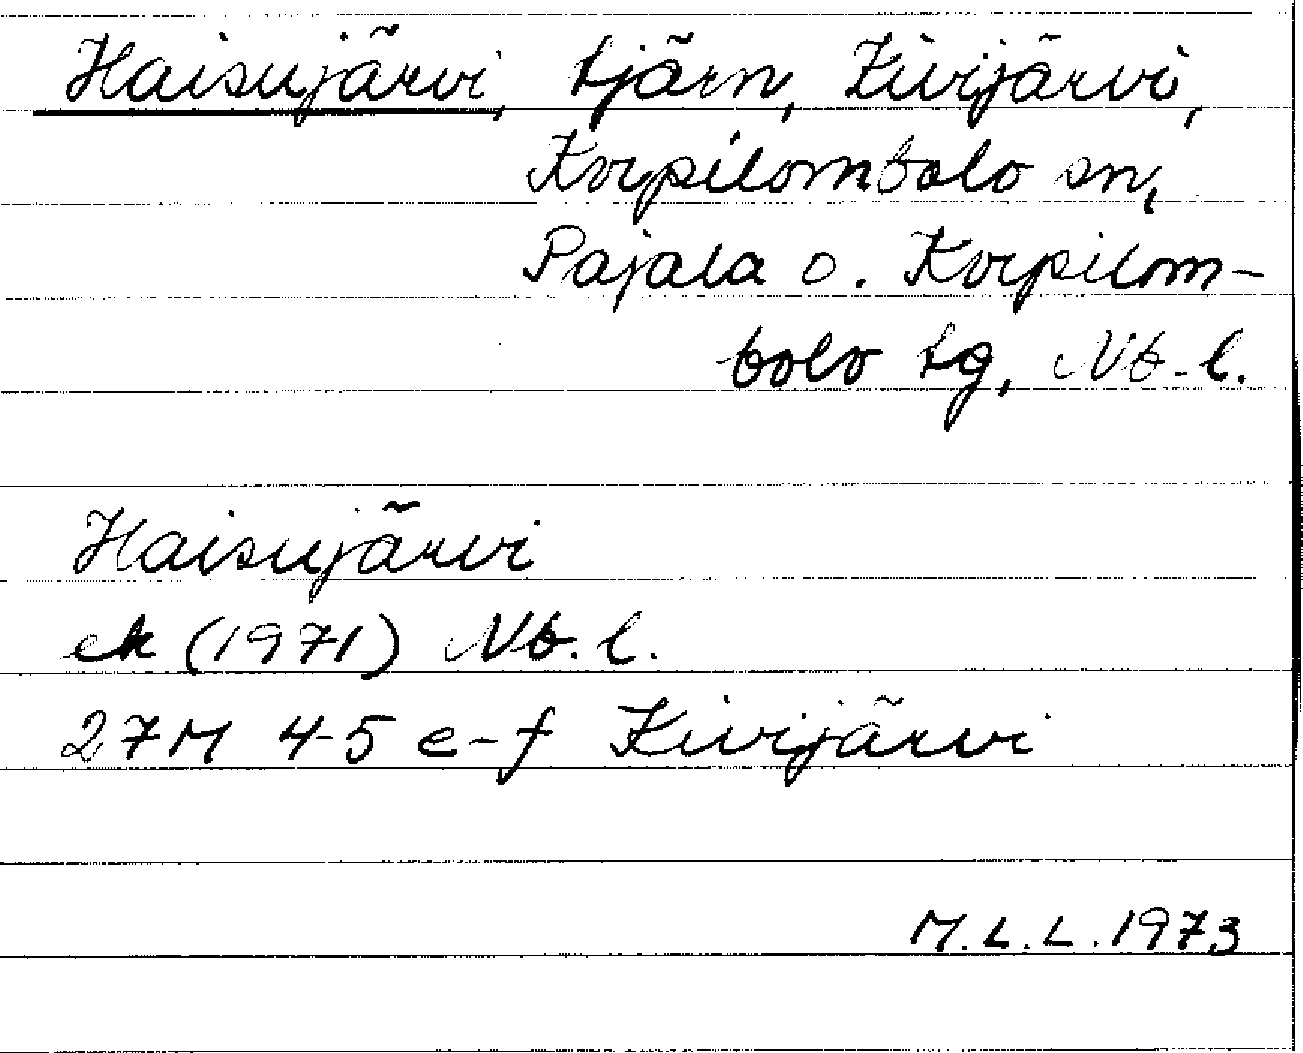 Haisujärvi, tjärn, Kivijärvi,
Korpilombolo sn,
Pajala o. Korpilom-
bolo tg, Nb. l.
Haisujärvi
ek (1971) Nb. l.
27M 4-5 e-f Kivijärvi
M.L.L. 1973